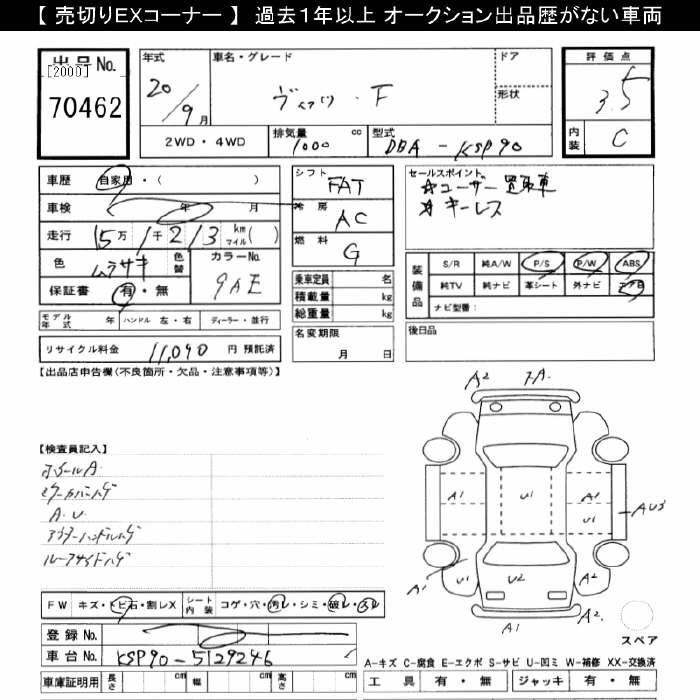 【 売切りEXコーナー 】 過去1年以上 オークション出品歴がない車両
出品No.
[2000]
70462
年式
20/9月
車名・グレード
ヴィッツ・F
ドア
形状
評価点
3.5
内装
C
2WD・4WD
排気量
1000
cc
型式
DBA-KSP90
車歴
自家用・( )
車検
年
月
走行
15万
1千
213
km
マイル( )
色
ムラサキ
色替
カラーNo.
9AE
保証書
有・無
シフト
FAT
冷房
AC
燃料
G
乗車定員
名
積載量
kg
総重量
kg
名変期限
月
日
セールスポイント
☆ユーザー買取車
☆キーレス
装備品
S/R
純A/W
P/S
P/W
ABS
純TV
純ナビ
革シート
外ナビ
エアB
ナビ型番:
後日品
モデル年式
年
ハンドル
左・右
ディーラー・並行
リサイクル料金
11,090
円 預託済
【出品店申告欄(不良箇所・欠品・注意事項等)】
【検査員記入】
ホイールA.
ミラーカバーハゲ
A.U.
アウターハンドルハゲ
ルーフサイドハゲ
A2
FA.
A1
U1
A1
U1
AU3
A1
U1
U2
A2
A1
A2.
スペア
FW
キズ・トビ石・割レX
シート内装
コゲ・穴・汚レ・シミ・破レ・スレ
登録No.
車台No.
KSP90-5129246
車庫証明用
長さ
cm
幅
cm
高さ
cm
A-キズ C-腐食 E-エクボ S-サビ U-凹ミ W-補修 XX-交換済
工具
有・無
ジャッキ
有・無